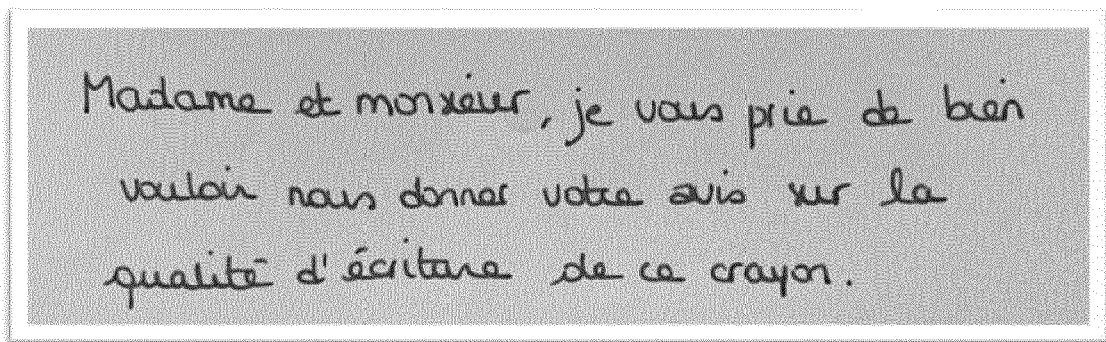 Madame et monsieur, je vous prie de bien
vouloir nous donner votre avis sur la
qualité d'écriture de ce crayon.